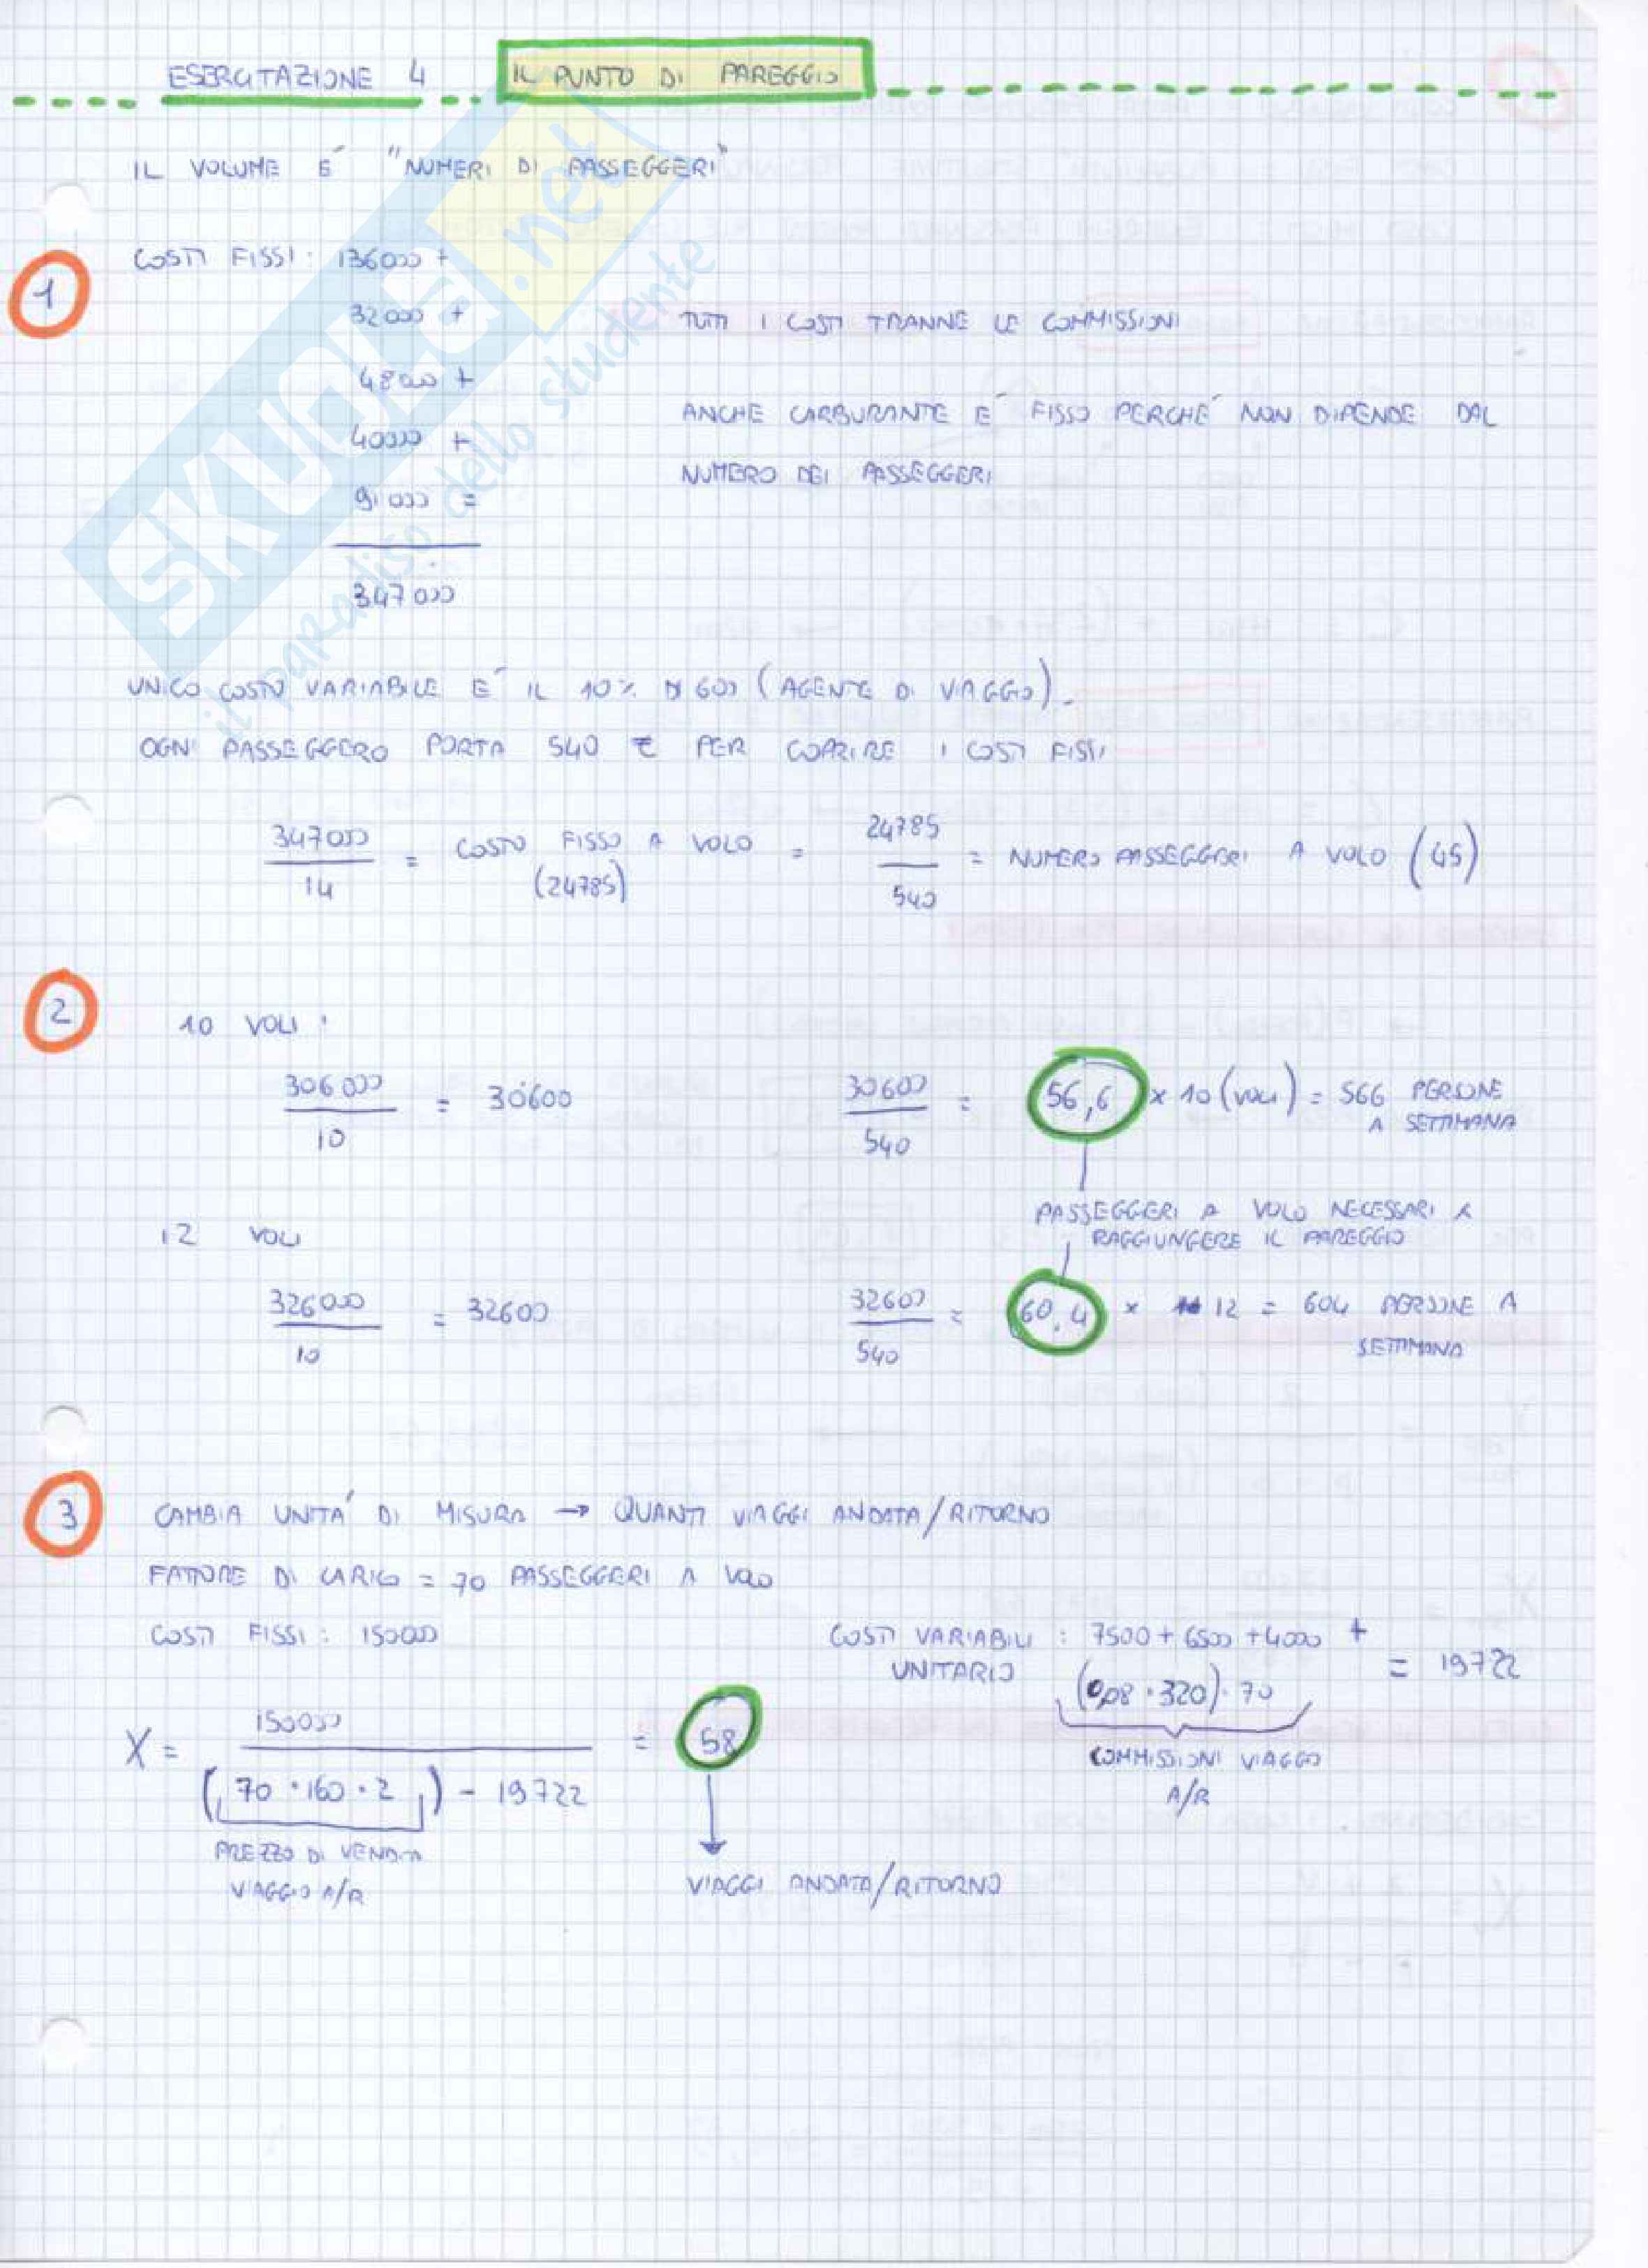 ESERCITAZIONE 4 IL PUNTO DI PAREGGIO
IL VOLUME E' "NUMERI DI PASSEGGERI"
1
COSTI FISSI: 136000 +
32000 +
48000 +
40000 +
91000 =
347000
TUTTI I COSTI TRANNE LE COMMISSIONI
ANCHE CARBURANTE E' FISSO PERCHE' NON DIPENDE DAL
NUMERO DEI PASSEGGERI
UNICO COSTO VARIABILE E' IL 10% DI 600 (AGENTE DI VIAGGIO).
OGNI PASSEGGERO PORTA 540 € PER COPRIRE I COSTI FISSI
347000 / 14 = COSTO FISSO A VOLO (24785) = 24785 / 540 = NUMERO PASSEGGERI A VOLO (45)
2
10 VOLI:
306000 / 10 = 30600
30600 / 540 = 56,6 x 10 (VOLI) = 566 PERSONE
A SETTIMANA
PASSEGGERI A VOLO NECESSARI A
RAGGIUNGERE IL PAREGGIO
12 VOLI
326000 / 10 = 32600
32600 / 540 = 60,4 x 12 = 604 PERSONE A
SETTIMANA
3
CAMBIA UNITA' DI MISURA → QUANTI VIAGGI ANDATA/RITORNO
FATTORE DI CARICO = 70 PASSEGGERI A VOLO
COSTI FISSI: 150000
COSTI VARIABILI : 7500 + 6500 + 4000 +
UNITARIO
(0,08 · 320) · 70
= 19722
COMMISSIONI VIAGGIO
A/R
X = 150000 / (70 · 160 · 2) - 19722 = 58
PREZZO DI VENDITA
VIAGGIO A/R
VIAGGI ANDATA/RITORNO
SKUOLA.net
il paradiso dello studente